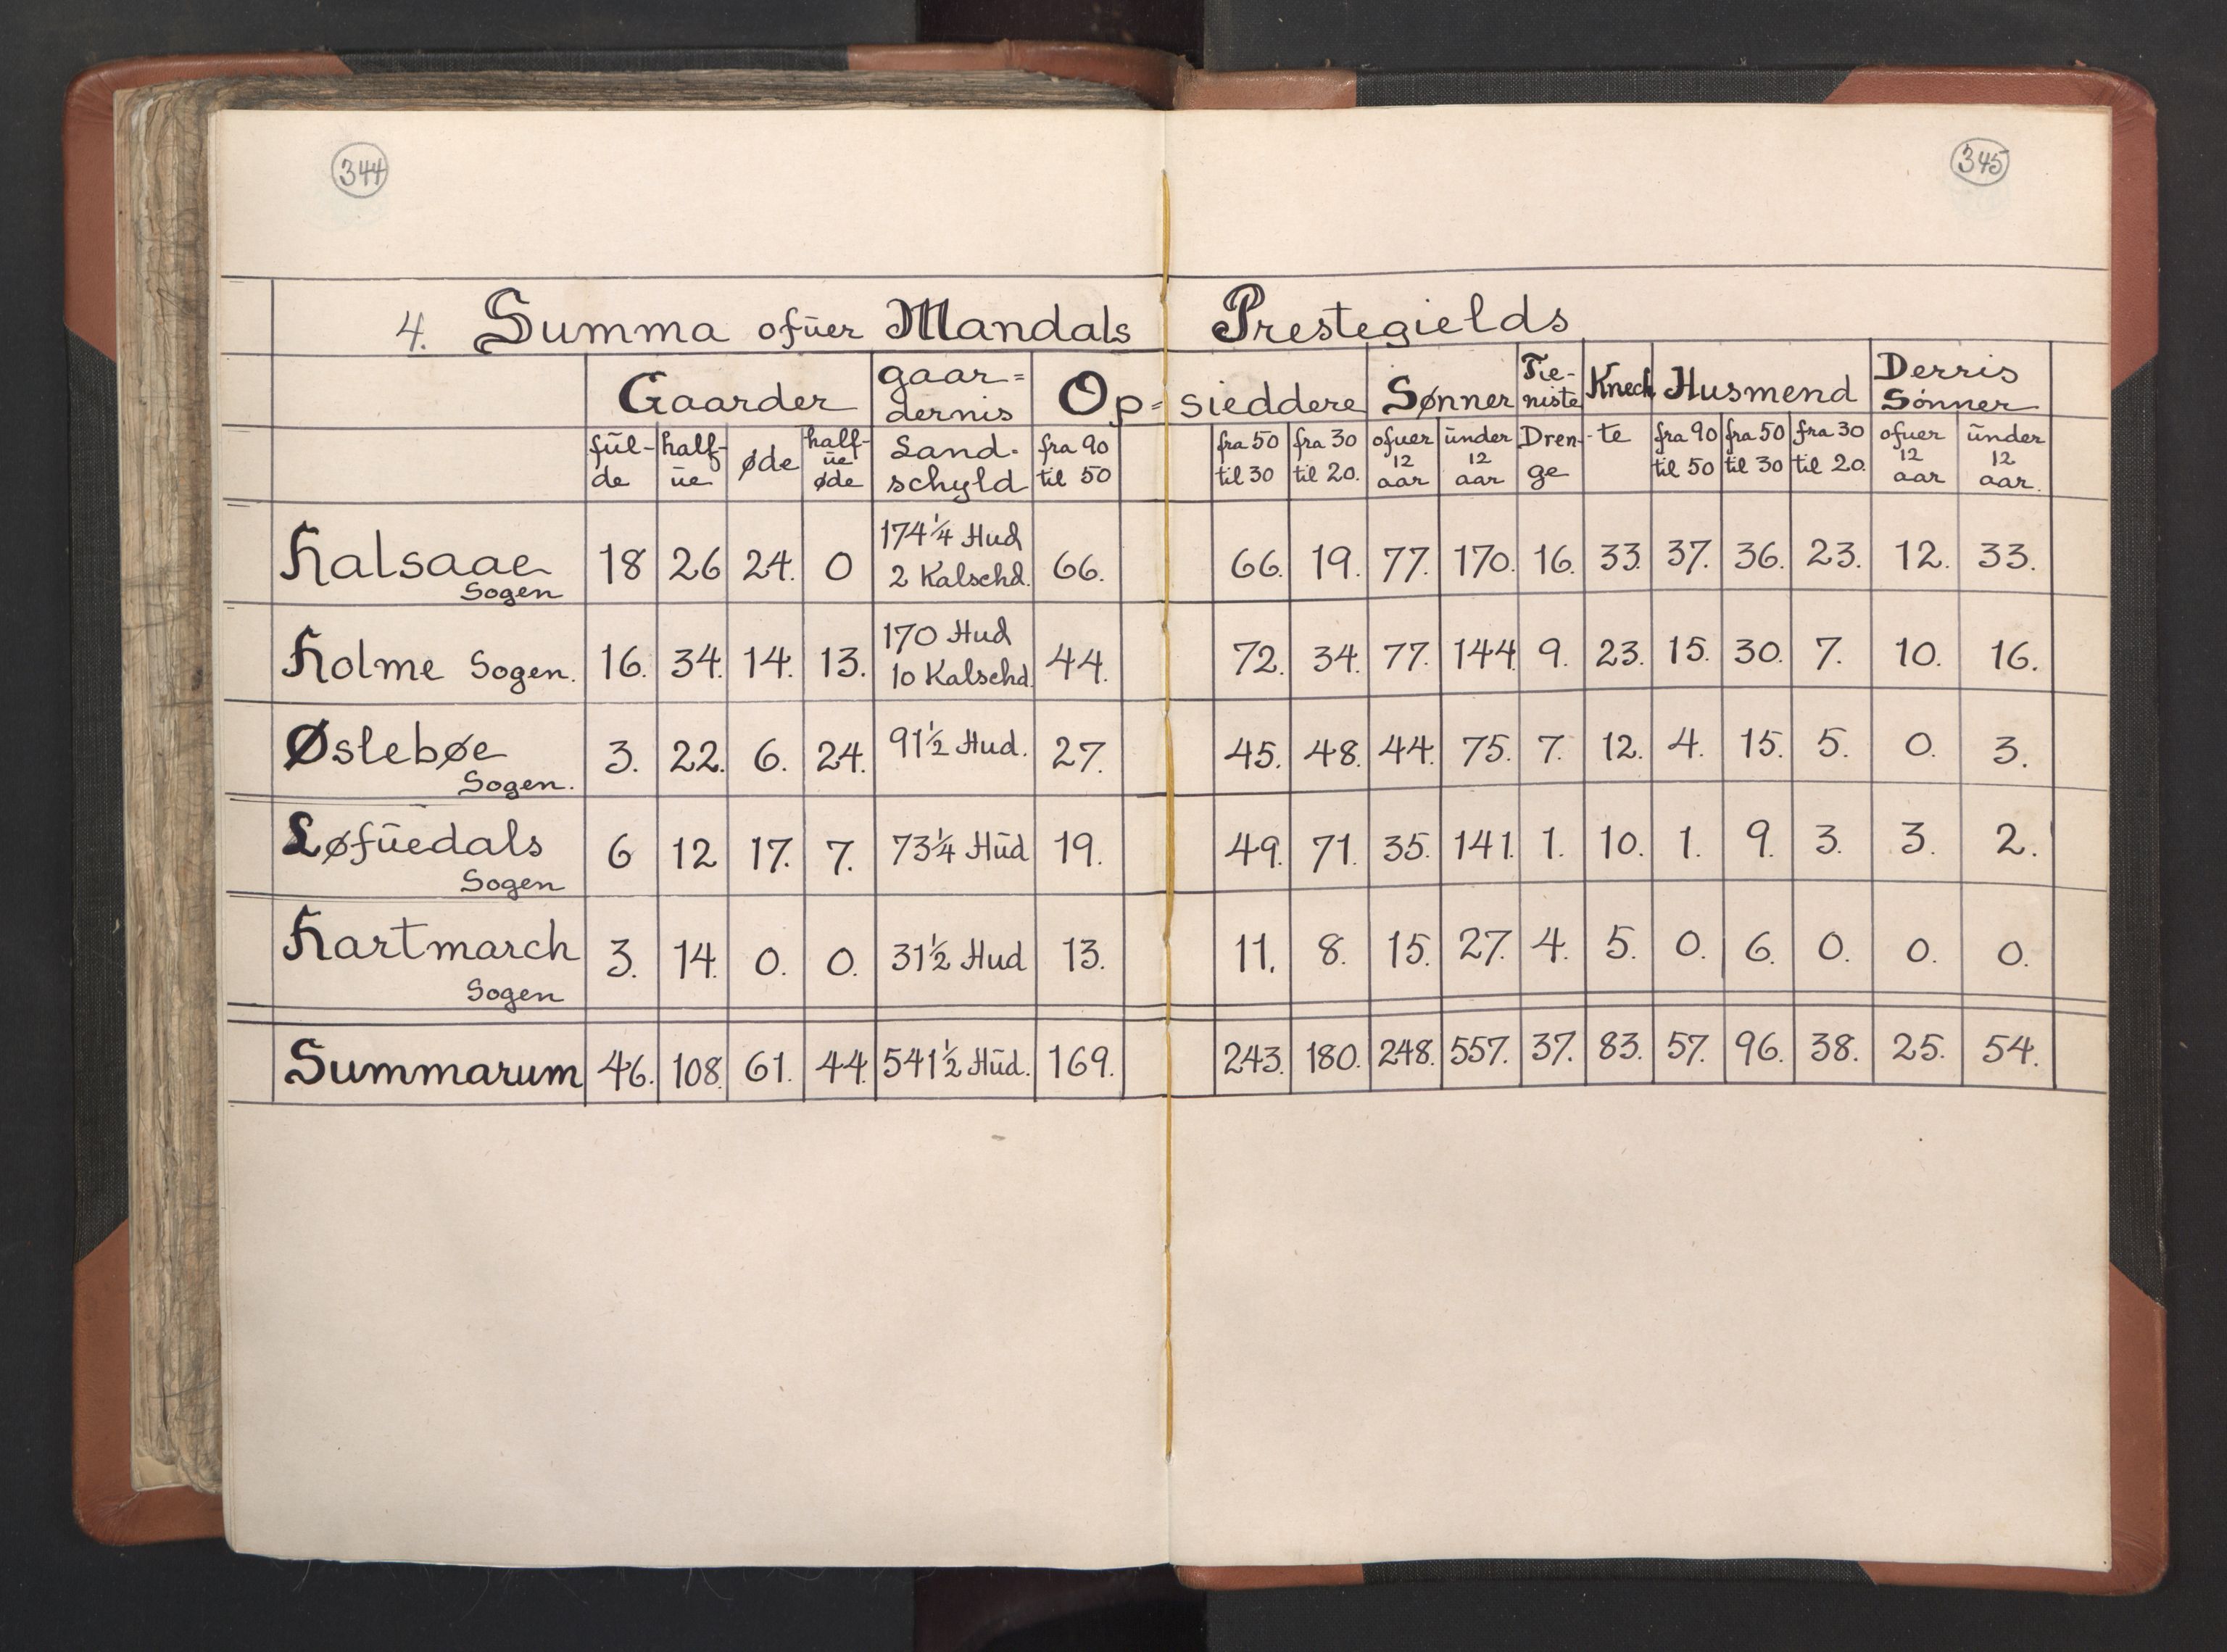 344
345
4. Summa ofüer Mandals Prestegields
Gaarder gaar= dernis Op= sieddere Sønner Tie- niste Knech Husmend Derris Sønner
fül- de half- üe øde half- üe øde Land- schyld fra 90 til 50 fra 50 til 30 fra 30 til 20. ofuer 12 aar ünder 12 aar Dren- ge -te fra 90 til 50 fra 50 til 30 fra 30 til 20. ofuer 12 aar ünder 12 aar.
Halsaae Sogen 18 26 24. 0 174¼ Hud 2 Kalschd. 66. 66. 19. 77. 170. 16. 33. 37. 36. 23. 12. 33.
Holme Sogen. 16. 34. 14. 13. 170 Hud 10 Kalschd. 44. 72. 34. 77. 144. 9. 23. 15. 30. 7. 10. 16.
Øslebøe Sogen. 3. 22. 6. 24. 91½ Hud. 27. 45. 48. 44. 75. 7. 12. 4. 15. 5. 0. 3.
Løfüedals Sogen 6 12 17. 7. 73¼ Hüd 19. 49. 71. 35. 141. 1. 10. 1. 9. 3. 3. 2.
Hartmarch Sogen 3. 14. 0. 0. 31½ Hud 13. 11. 8. 15. 27. 4. 5. 0. 6. 0. 0. 0.
Summarum 46. 108. 61. 44. 541½ Hüd. 169. 243. 180. 248. 557. 37. 83. 57. 96. 38. 25. 54.